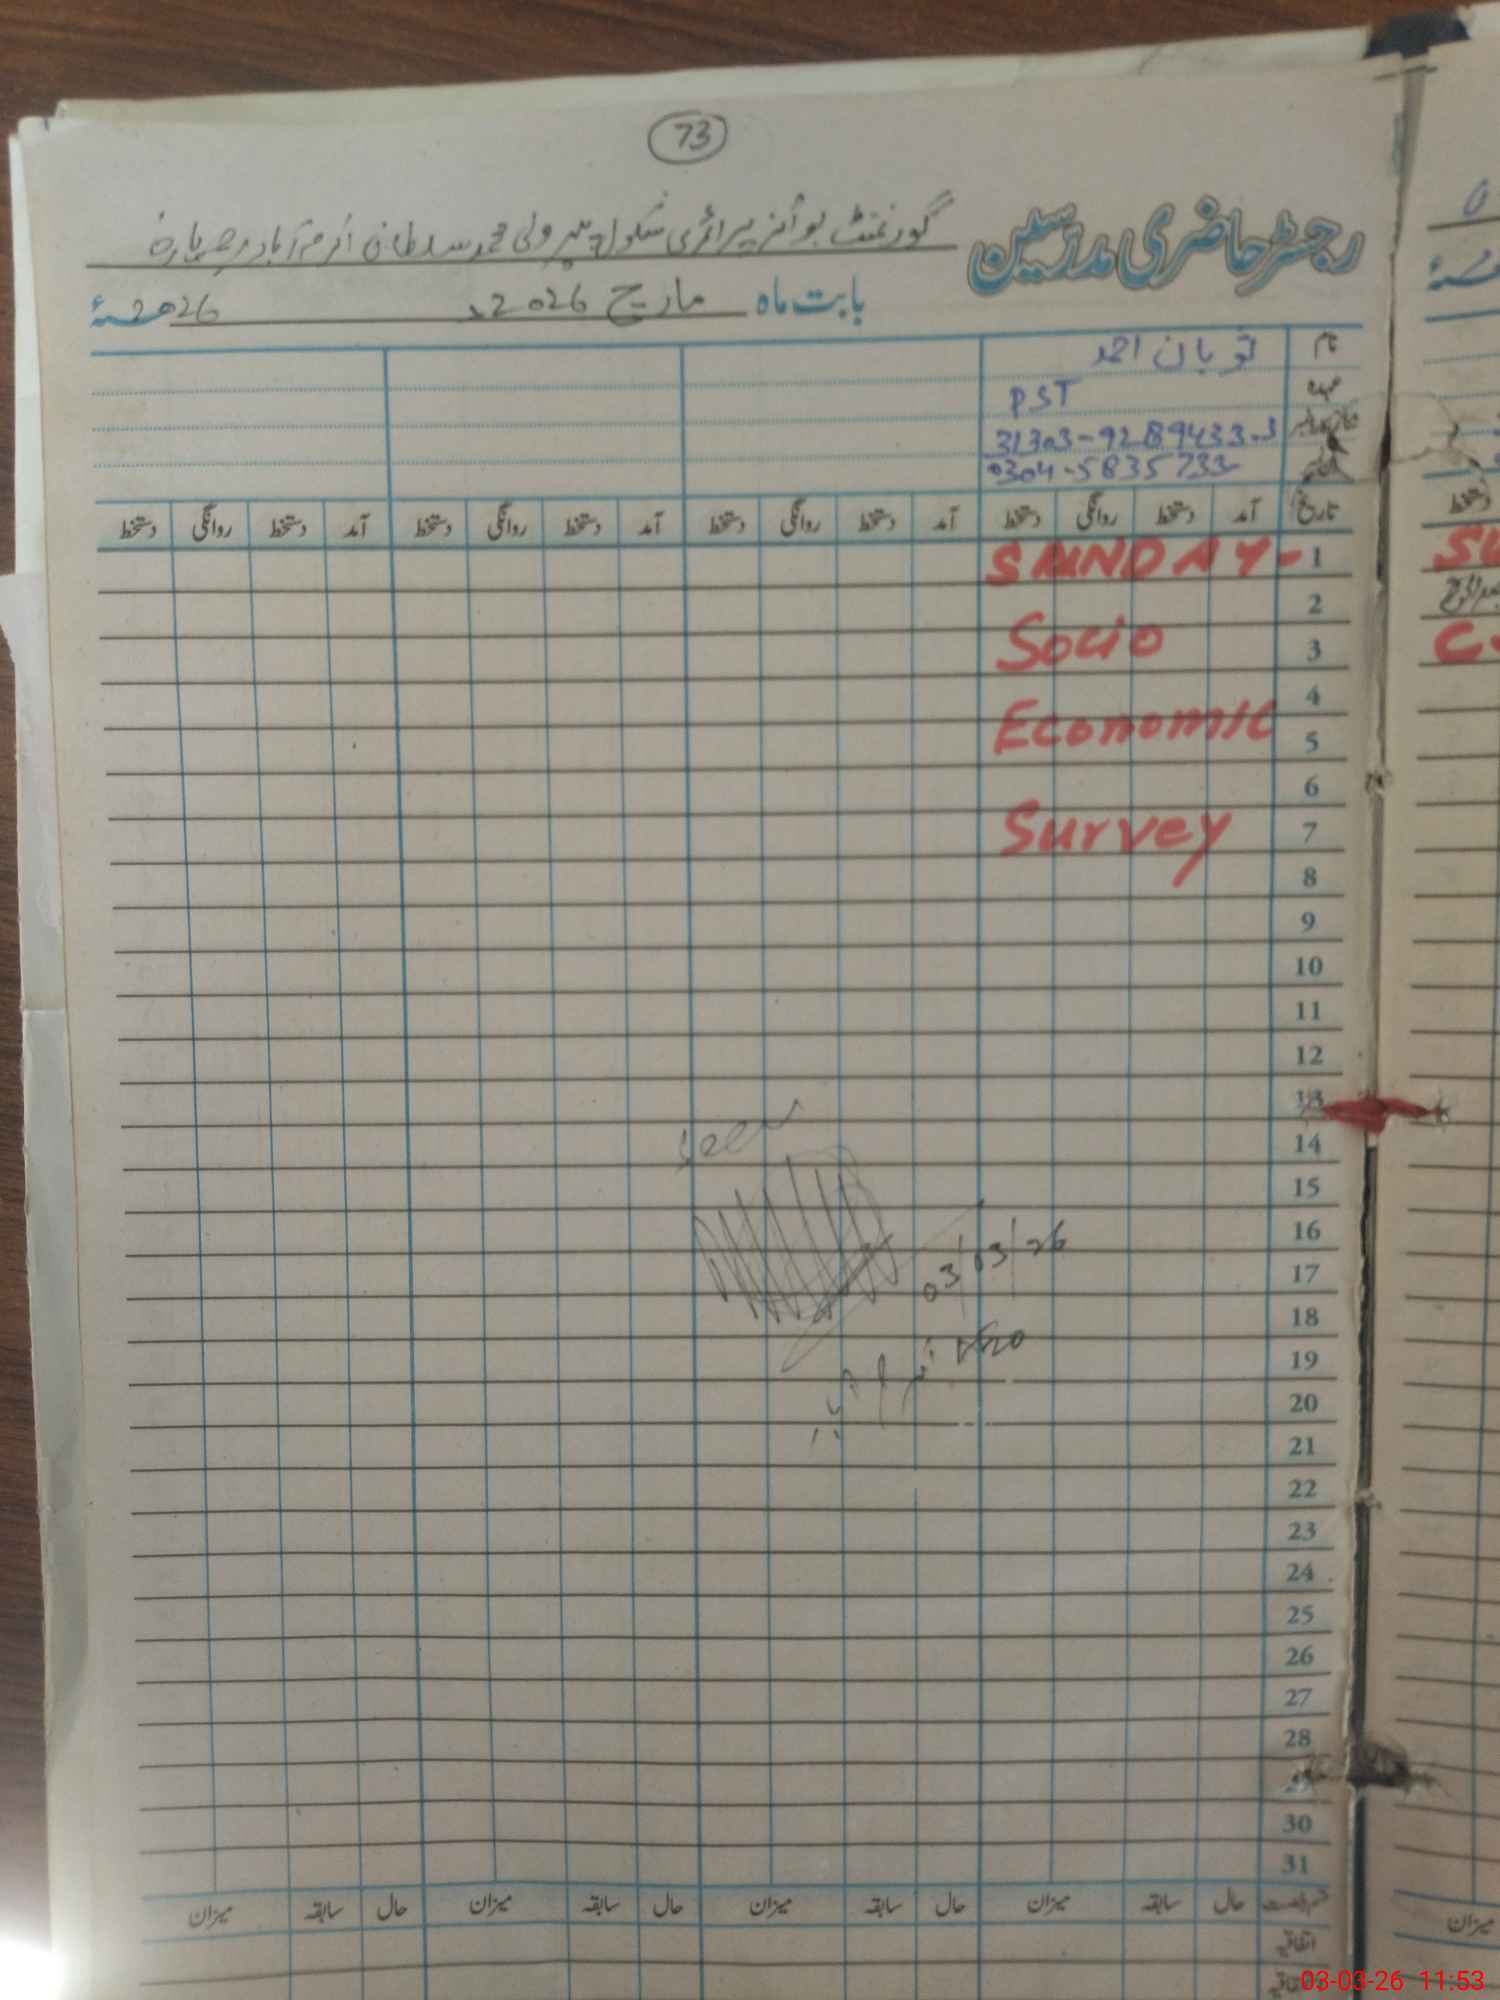 73
رجسٹر حاضری مدرسین گورنمنٹ بوائز پرائمری سکول پیر ولی محمد سلطان اکرم آباد
بابت ماہ مارچ 2026ء 2026ء
نام ثوبان احمد
عہدہ PST
31303-9289433-3
0304-5835733
تاریخ آمد دستخط روانگی دستخط آمد دستخط روانگی دستخط آمد دستخط روانگی دستخط آمد دستخط روانگی دستخط دستخط
1 SUNDAY- SU
2
3 Socio C.
4
5 Economic
6
7 Survey
8
9
10
11
12
13
14
15
16
17
18
19
20
21
22
23
24
25
26
27
28
29
30
31
Seen
03/03/26
حال سابقہ میزان حال سابقہ میزان حال سابقہ میزان حال سابقہ میزان میزان
اتفاقیہ
03-03-26 11:53